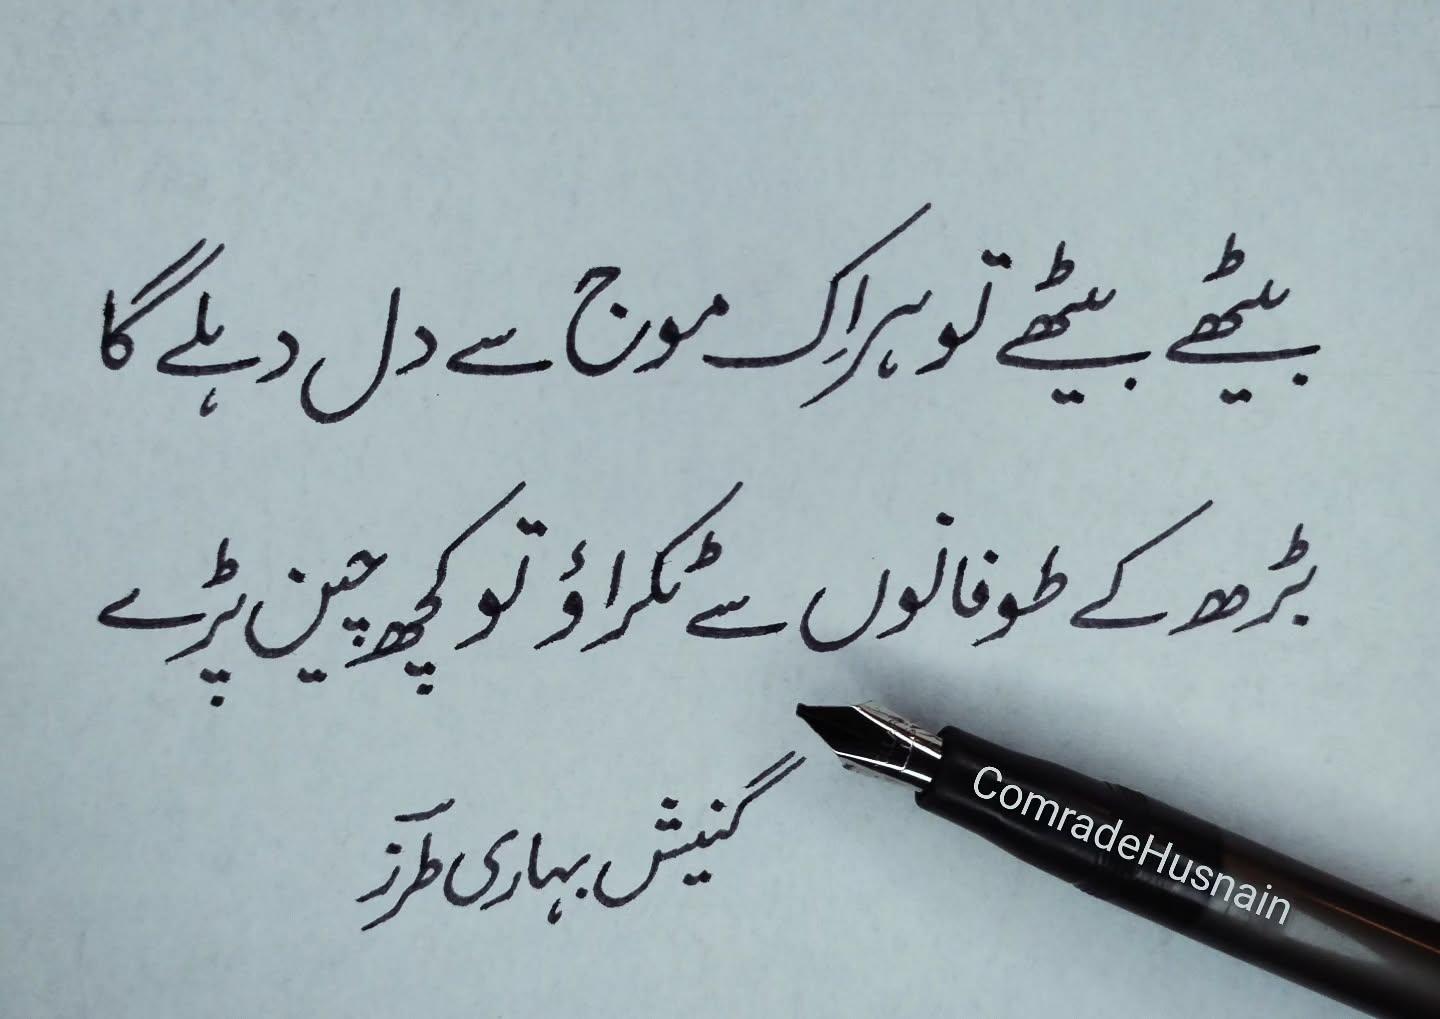 بیٹھے بیٹھے تو ہر اِک موج سے دل دہلے گا
بڑھ کے طوفانوں سے ٹکراؤ تو کچھ چین پڑے
گنیش بہاری طرزؔ
ComradeHusnain